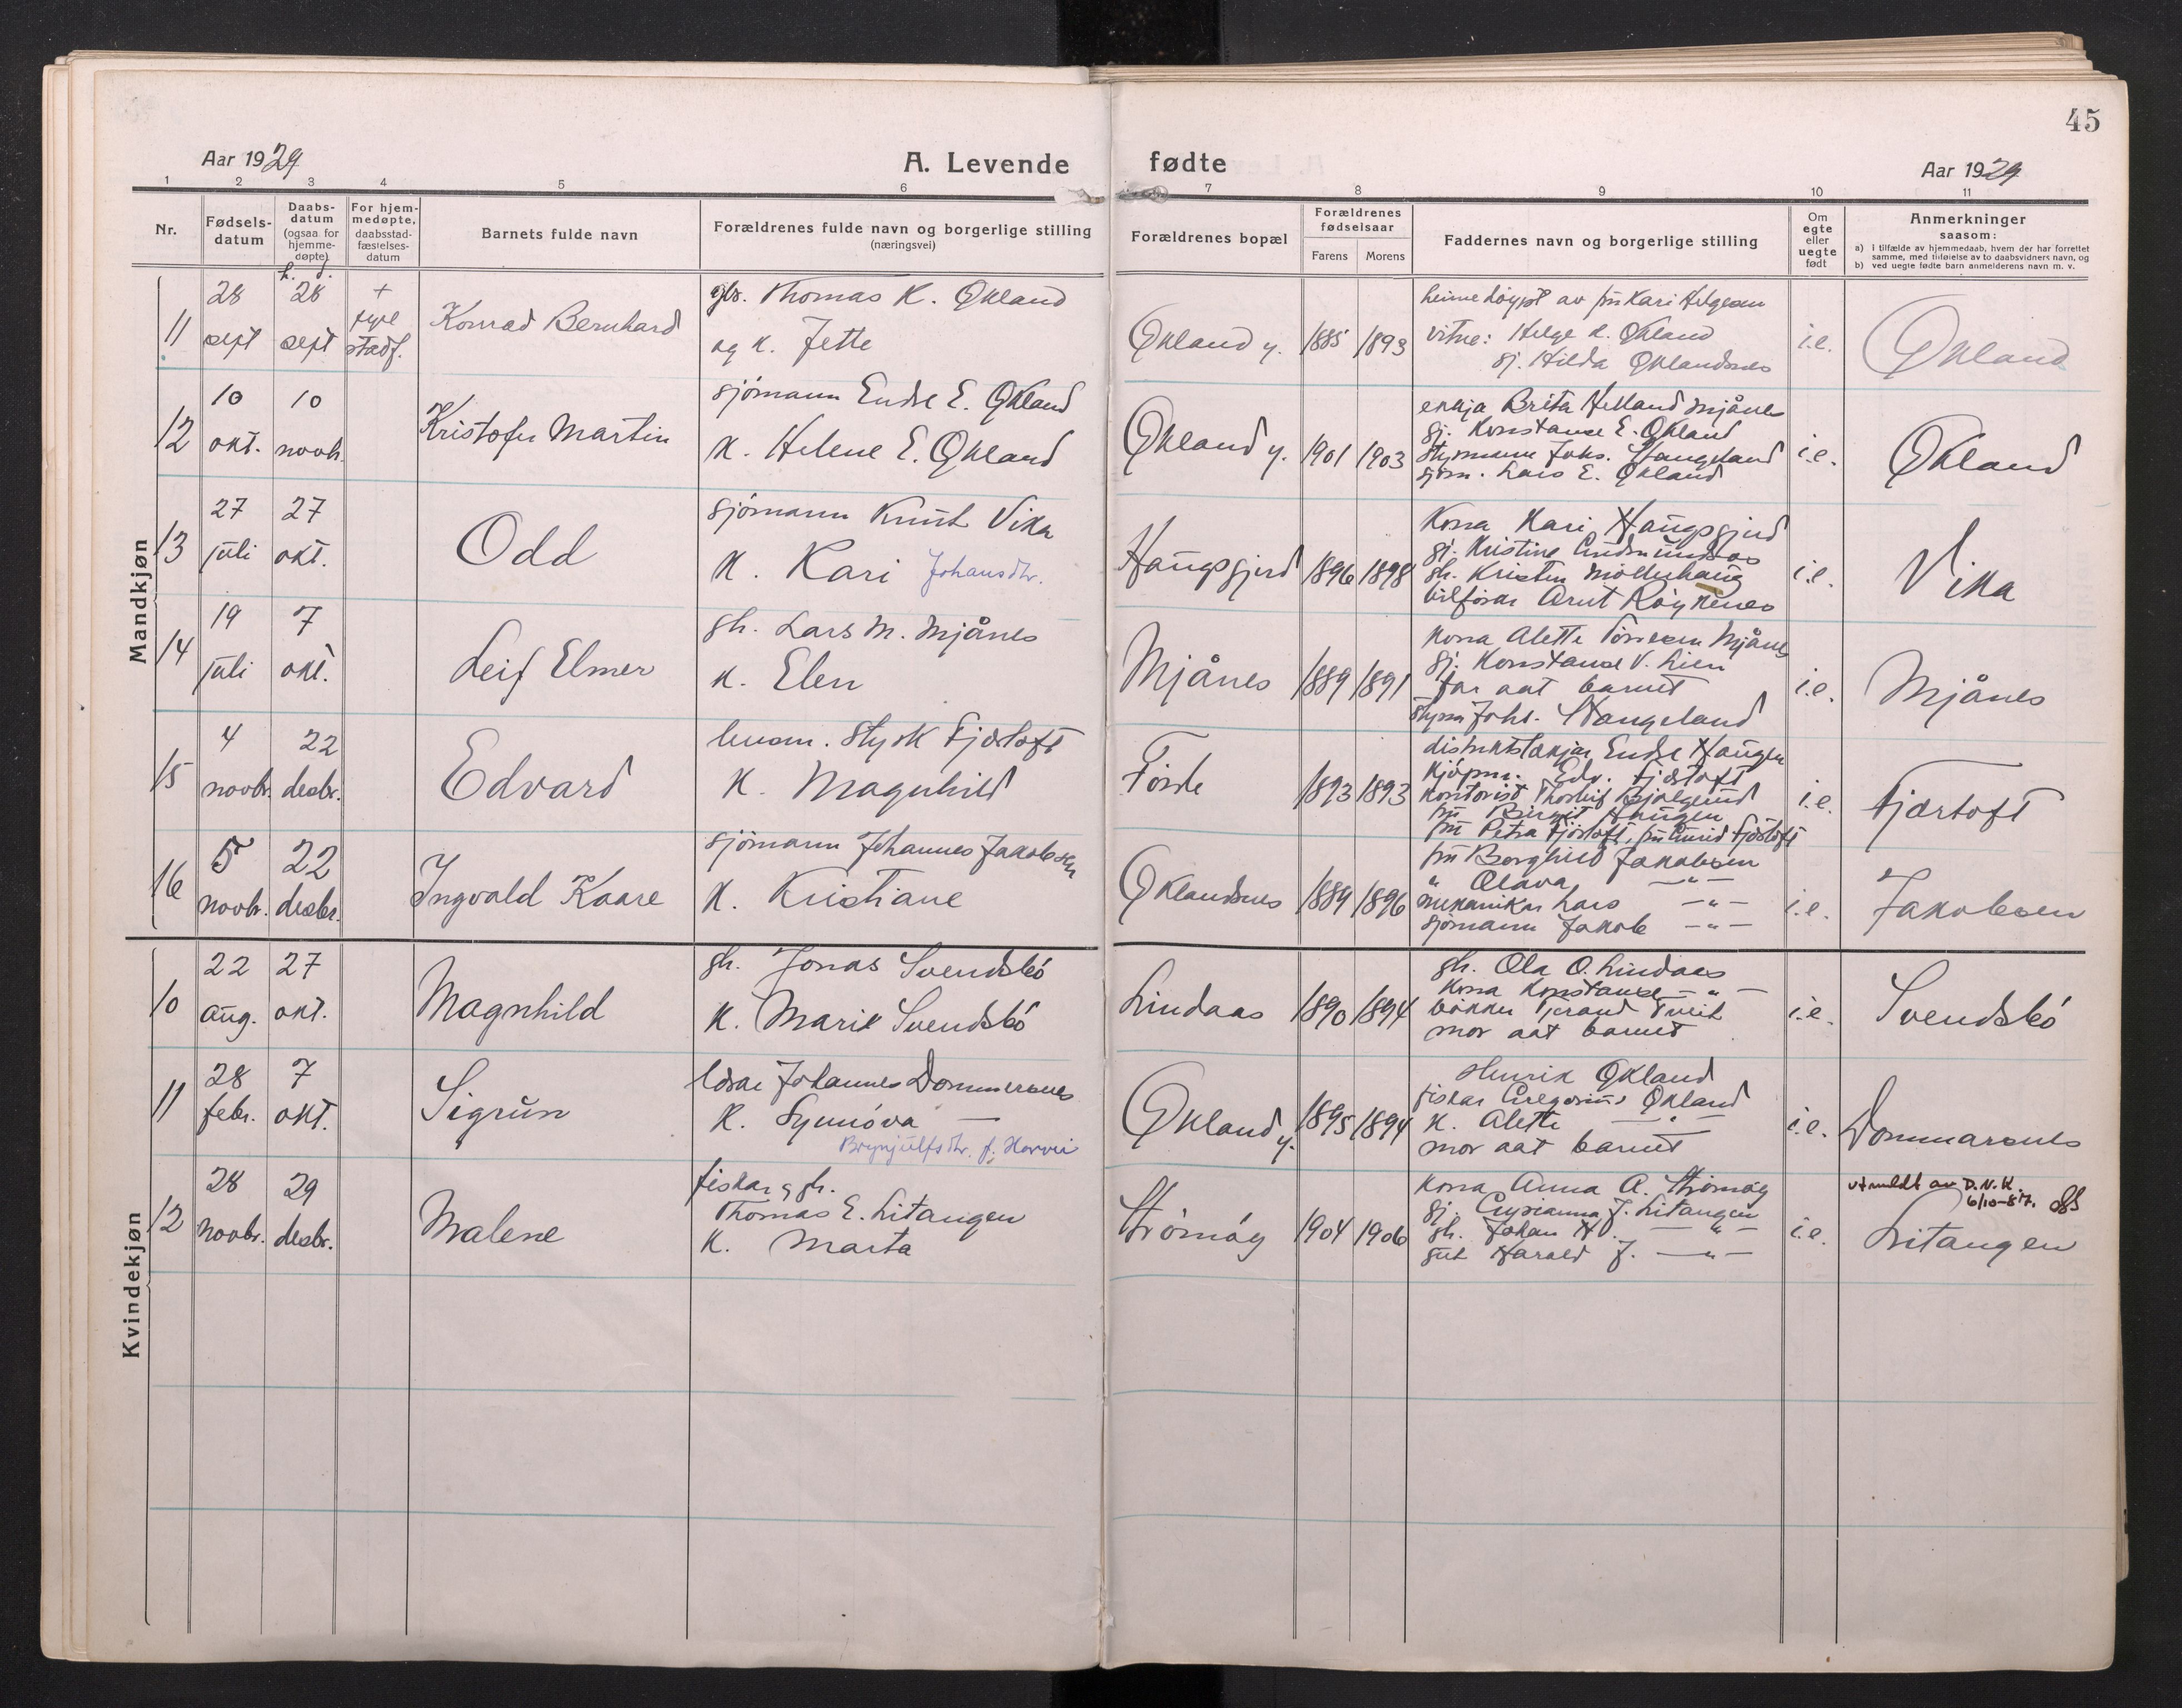 45
Aar 1929
A. Levende fødte
Aar 1929
1 2 3 4 5 6 7 8 9 10 11
Nr.
Fødsels-
datum
Daabs-
datum
(ogsaa for
hjemme-
døpte)
For hjem-
medøpte,
daabsstad-
fæstelses-
datum
Barnets fulde navn
Forældrenes fulde navn og borgerlige stilling
(næringsvei)
Forældrenes bopæl
Forældrenes
fødselsaar
Farens Morens
Faddernes navn og borgerlige stilling
Om
egte
eller
uegte
født
Anmerkninger
saasom:
a) i tilfælde av hjemmedaab, hvem der har forrettet
samme, med tilføielse av to daabsvidners navn, og
b) ved uegte fødte barn anmelderens navn m. v.
Mandkjøn
11
28
sept
h. d.
28
sept
+
fyre
stadf.
Konrad Bernhard
gbr. Thomas K. Økland
og k. Jette
Økland y.
1885 1893
heimedøypt av frü Kari Helgesen
vitne: Helge K. Økland
gj. Hilda Øklandsnes
i.e.
Økland
12
10
okt.
10
novbr.
Kristofer Martin
sjömann Endre E. Økland
k. Helene E. Økland
Økland y.
1901 1903
enkja Brita Helland Mjånes
gj. Konstanse E. Økland
styrmann Johs. Stangeland
sjøm. Lars E. Økland
i.e.
Økland
13
27
jüli
27
okt.
Odd
sjömann Knüt Vika
k. Kari Johansdtr.
Haügsgjerd
1896 1898
Kona Kari Haügsgjerd
gj. Kristine
gh. Kristen Møllerhaüg
bilförar Arnt Röyknes
i.e.
Vika
14
19
jüli
7
okt.
Leif Elmer
gh. Lars M. Mjånes
k. Elen
Mjånes
1889 1891
Kona Alette Mjånes
gj. Konstanse V. Lien
far aat barnet
styrm Johs. Stangeland
i.e.
Mjånes
15
4
novbr.
22
desbr.
Edvard
lensm. Styrk Fjærtoft
k. Magnhild
Förde
1893 1893
distriktslækjar Endre Haügen
kjöpm. Edv. Fjærtoft
kontorist Thorleif
frü Birgit Haügen
frü Petra Fjærtoft, frü Fjærtoft
i.e.
Fjærtoft
16
5
novbr.
22
desbr.
Ingvald Kaare
sjömann Johannes Jakobsen
k. Kristiane
Øklandsnes
1889 1896
frü Borghild Jakobsen
" Olava —"—
mekanikar Lars —"—
sjömann Jakob —"—
i.e.
Jakobsen
Kvindekjøn
10
22
aüg.
27
okt.
Magnhild
gh. Jonas Svendsbö
k. Marie Svendsbö
Lindaas
1890 1894
gh. Ola O. Lindaas
Kona Konstanse —"—
bökker Tjerand Tveit
mor aat barnet
i.e.
Svendsbö
11
28
febr.
7
okt.
Sigrün
lærar Johannes Dommersnes
k. Synnöva —
Brynjülfsdtr. f. Hervei
Økland y.
1895 1894
Henrik Økland
fiskar Gregorius Økland
k. Alette —"—
mor aat barnet
i.e.
Dommarsnes
12
28
novbr.
29
desbr.
Malene
fiskar g gh.
Thomas E. Litangen
k. Marta
Strömöy
1904 1906
Kona Anna A. Strömöy
gj. J. Litangen
gh. Johan H. —"—
güt Harald J. —"—
i.e.
utmeldt av D.N.K
6/10-87.
Litangen